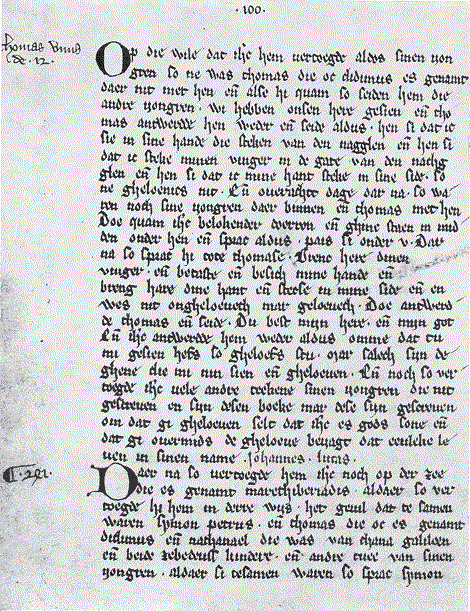 · 100 ·
thomas unus
de · 12 ·
Op die wile dat ihc hem vertoegde aldos sinen yon
gren so ne was thomas die oc didimus es genamt
daer nit met hen en̄ alse hi quam so seiden hem die
andre yongren · we hebben onsen here gesien en̄ tho
mas antwerde hen weder en̄ seide aldus · hen si dat ic
sie in sine hande die steken van den nagglen en̄ hen si
dat ic steke minen vinger in de gate van den nachg
glen en̄ hen si dat ic mine hant steke in sine side · so
ne gheloevics nit · En̄ overachte dage dar na · so wa
ren noch sine yongren daer binnen en̄ thomas met hen
Doe quam ihc belokender doerren en̄ ghinc staen in mid
den onder hen en̄ sprac aldus · pais si onder v · Dar
na so sprac hi tote thomase · Brenc here dinen
vinger · en̄ betaste en̄ besich mine hande en̄
breng hare dine hant en̄ steckse in mine side en̄ en
wes nit ongheloevech mar geloevech · Doe antwerd
de thomas en̄ seide · Du best mijn here · en̄ mijn got
En̄ ihc antwerde hem weder aldus omme dat tu
mi gesien hefs so gheloefs stu · mar salech sijn de
ghene die mi nin sien en̄ gheloeven · En̄ noch so ver
toegde ihc vele andre teekene sinen yongren die nit
gescreven en sijn desen boeke mar dese sijn gescreven
om dat gi gheloeven selt dat ihc es gods sone en̄
dat gi overmids de gheloeve beyagt dat eeuleke le
ven in sinen name · Johannes · lucas ·
C · 241 ·
Daer na so vertoegde hem ihc noch op der zee
die es genamt marethiberiadis · aldaer so ver
toegde hi hem in derre wijs · het geviel dat te samen
waren symon petrus · en̄ thomas die oc es genamt
didimus en̄ nathanael die was van chana galileen
en̄ beide zebedeus kindere · en̄ andre twee van sinen
yongren · aldaer si tesamen waren so sprac symon